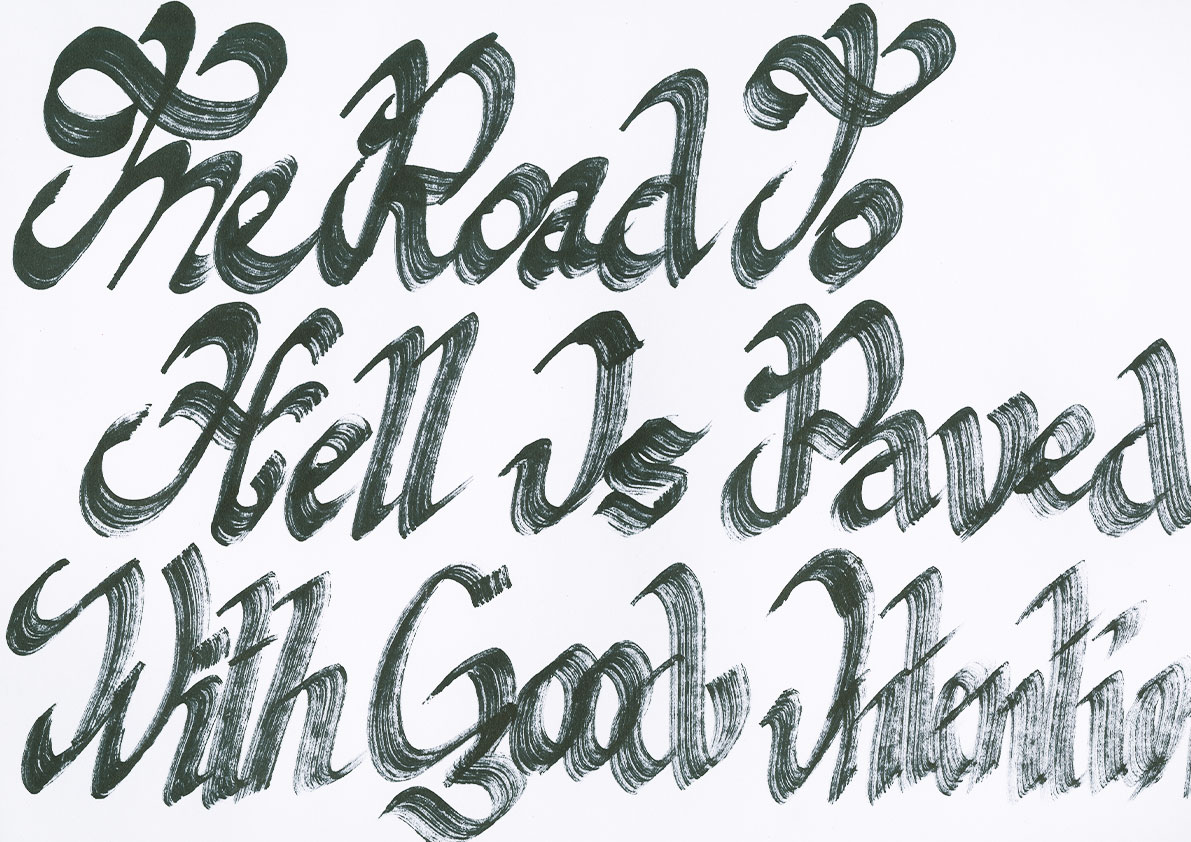 The Road To
Hell Is Paved
With Good Intentio